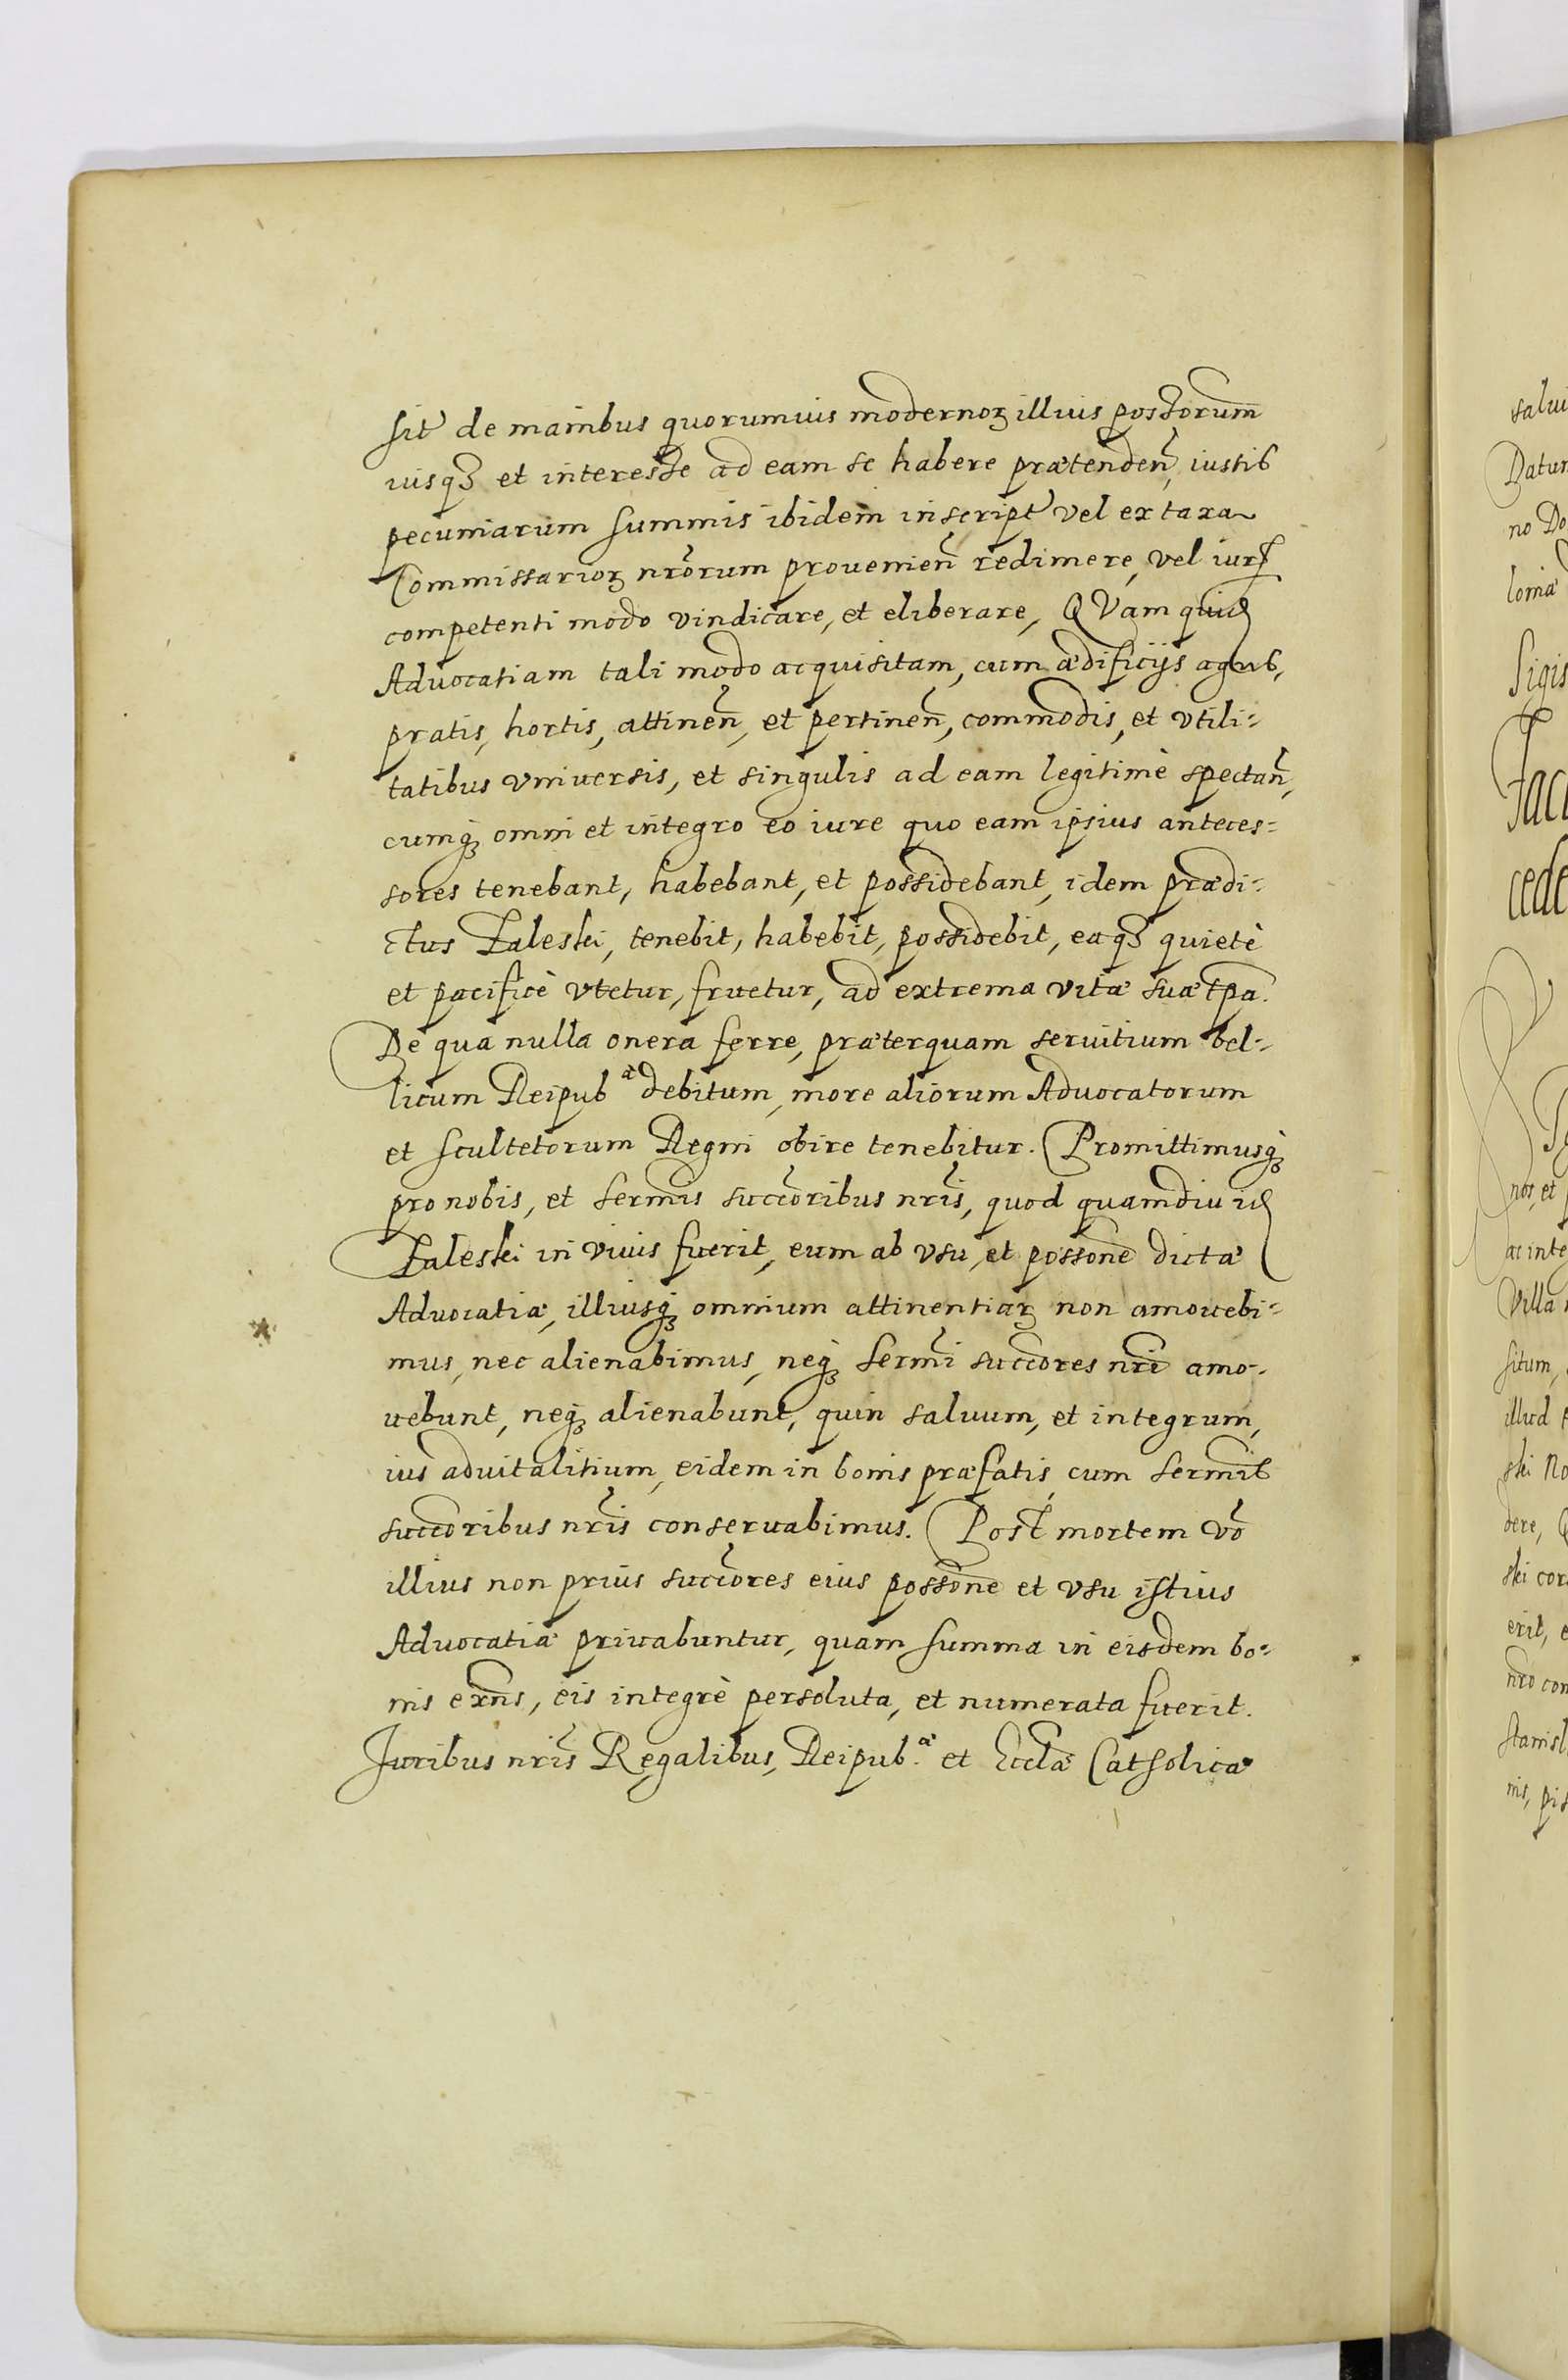 sit de manibus quorumuis modernoꝝ illius possorum
iusqꝫ et interesse ad eam se habere prætenden̄, iustis
pecuniarum summis ibidem inscript vel ex taxa
Commissarioꝝ nrorum prouenien̄ redimere, vel iure
competenti modo vindicare, et eliberare, QVam quid
Aduocatiam tali modo acquisitam, cum ædificijs agris,
pratis, hortis, attinen̄, et pertinen̄, commodis, et vtili-
tatibus vniuersis, et singulis ad eam legitimè spectan̄,
cumqꝫ omni et integro eo iure quo eam ipsius anteces-
sores tenebant, habebant, et possidebant, idem prædi-
ctus Zaleski, tenebit, habebit, possidebit, eaqꝫ quietè
et pacificè vtetur, fruetur, ad extrema vitæ suæ tpa.
De qua nulla onera ferre, præterquam seruitium bel-
licum Reipubᵃᵉ debitum, more aliorum Aduocatorum
et scultetorum Regni obire tenebitur. Promittimusqꝫ
pro nobis, et sermis succoribus nris, quod quamdiu id
Zaleski in viuis fuerit, eum ab vsu, et possone dictæ
Aduocatiæ, illiusqꝫ omnium attinentiaꝝ non amouebi-
mus, nec alienabimus, neqꝫ sermi succores nri amo-
uebunt, neqꝫ alienabunt, quin saluum, et integrum,
ius aduitalitium, eidem in bonis præfatis, cum sermis
succoribus nris conseruabimus. Post mortem vo
illius non prius succores eius possone et vsu istius
Aduocatiæ priuabuntur, quam summa in eisdem bo-
nis exns, eis integrè persoluta, et numerata fuerit.
Juribus nris Regalibus, Reipub.ᵃᵉ et Ecclæ Catholicæ
salui
Datum
no Do
loniæ
Sigis
Jac
cede
nos, et
ac inte
Villa
situm,
illud
ski No
dere,
ski cor
erit, e
nro con
Stanisl
nis, pis